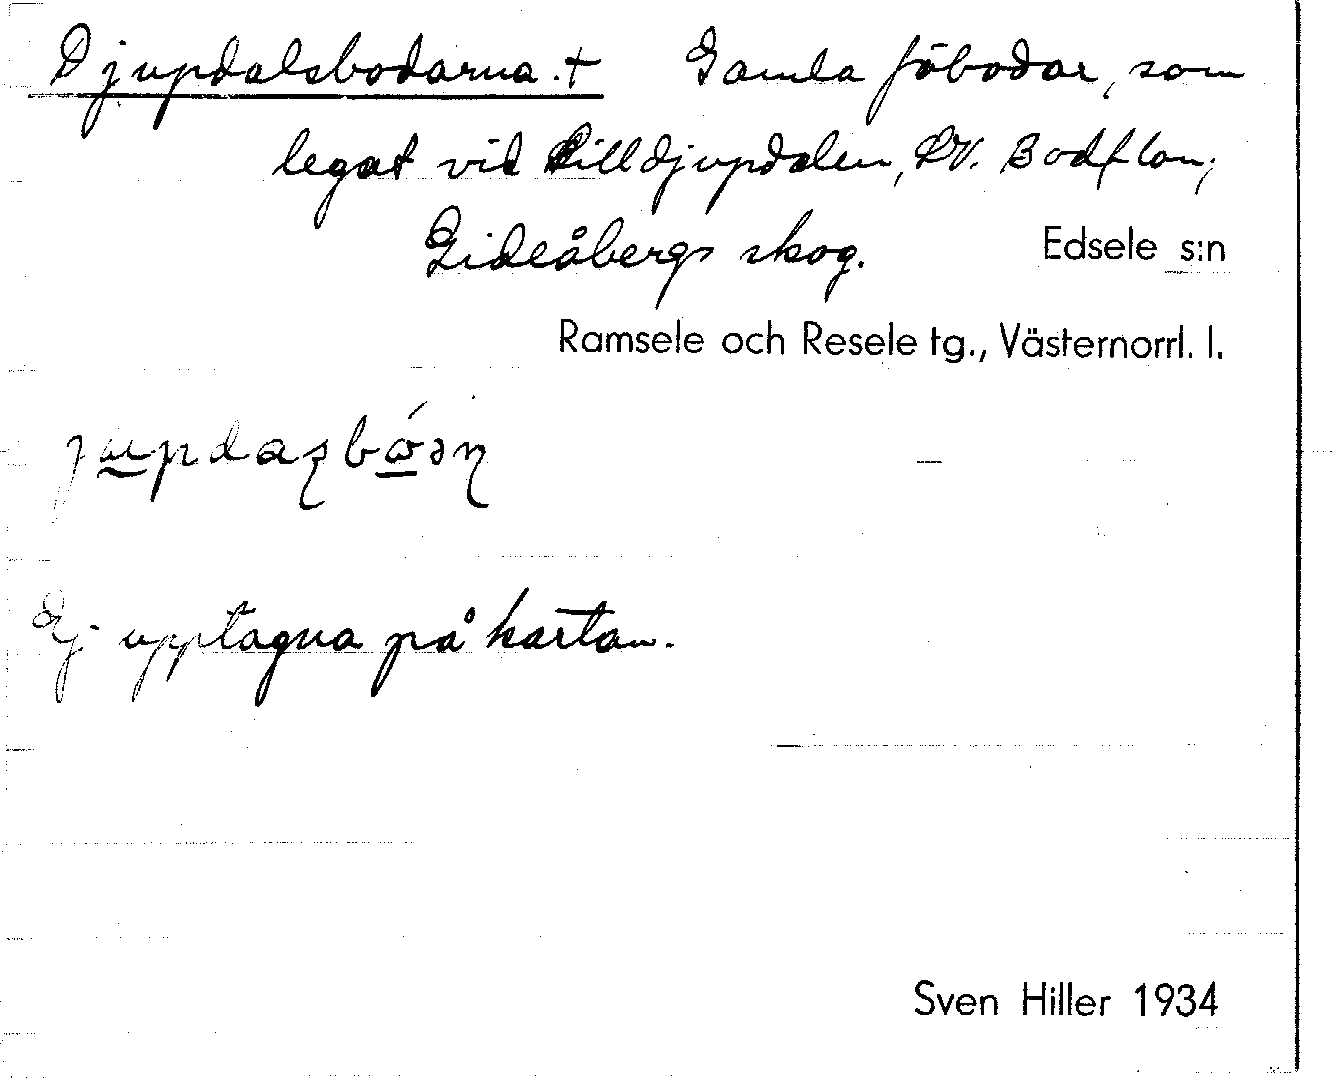 Djupdalsbodarna. + Gamla fäbodar, som
legat vid Lilldjupdalen, SV. Bodflon,
Gideåbergs skog. Edsele s:n
Ramsele och Resele tg., Västernorrl. l.
Ej upptagna på kartan.
Sven Hiller 1934